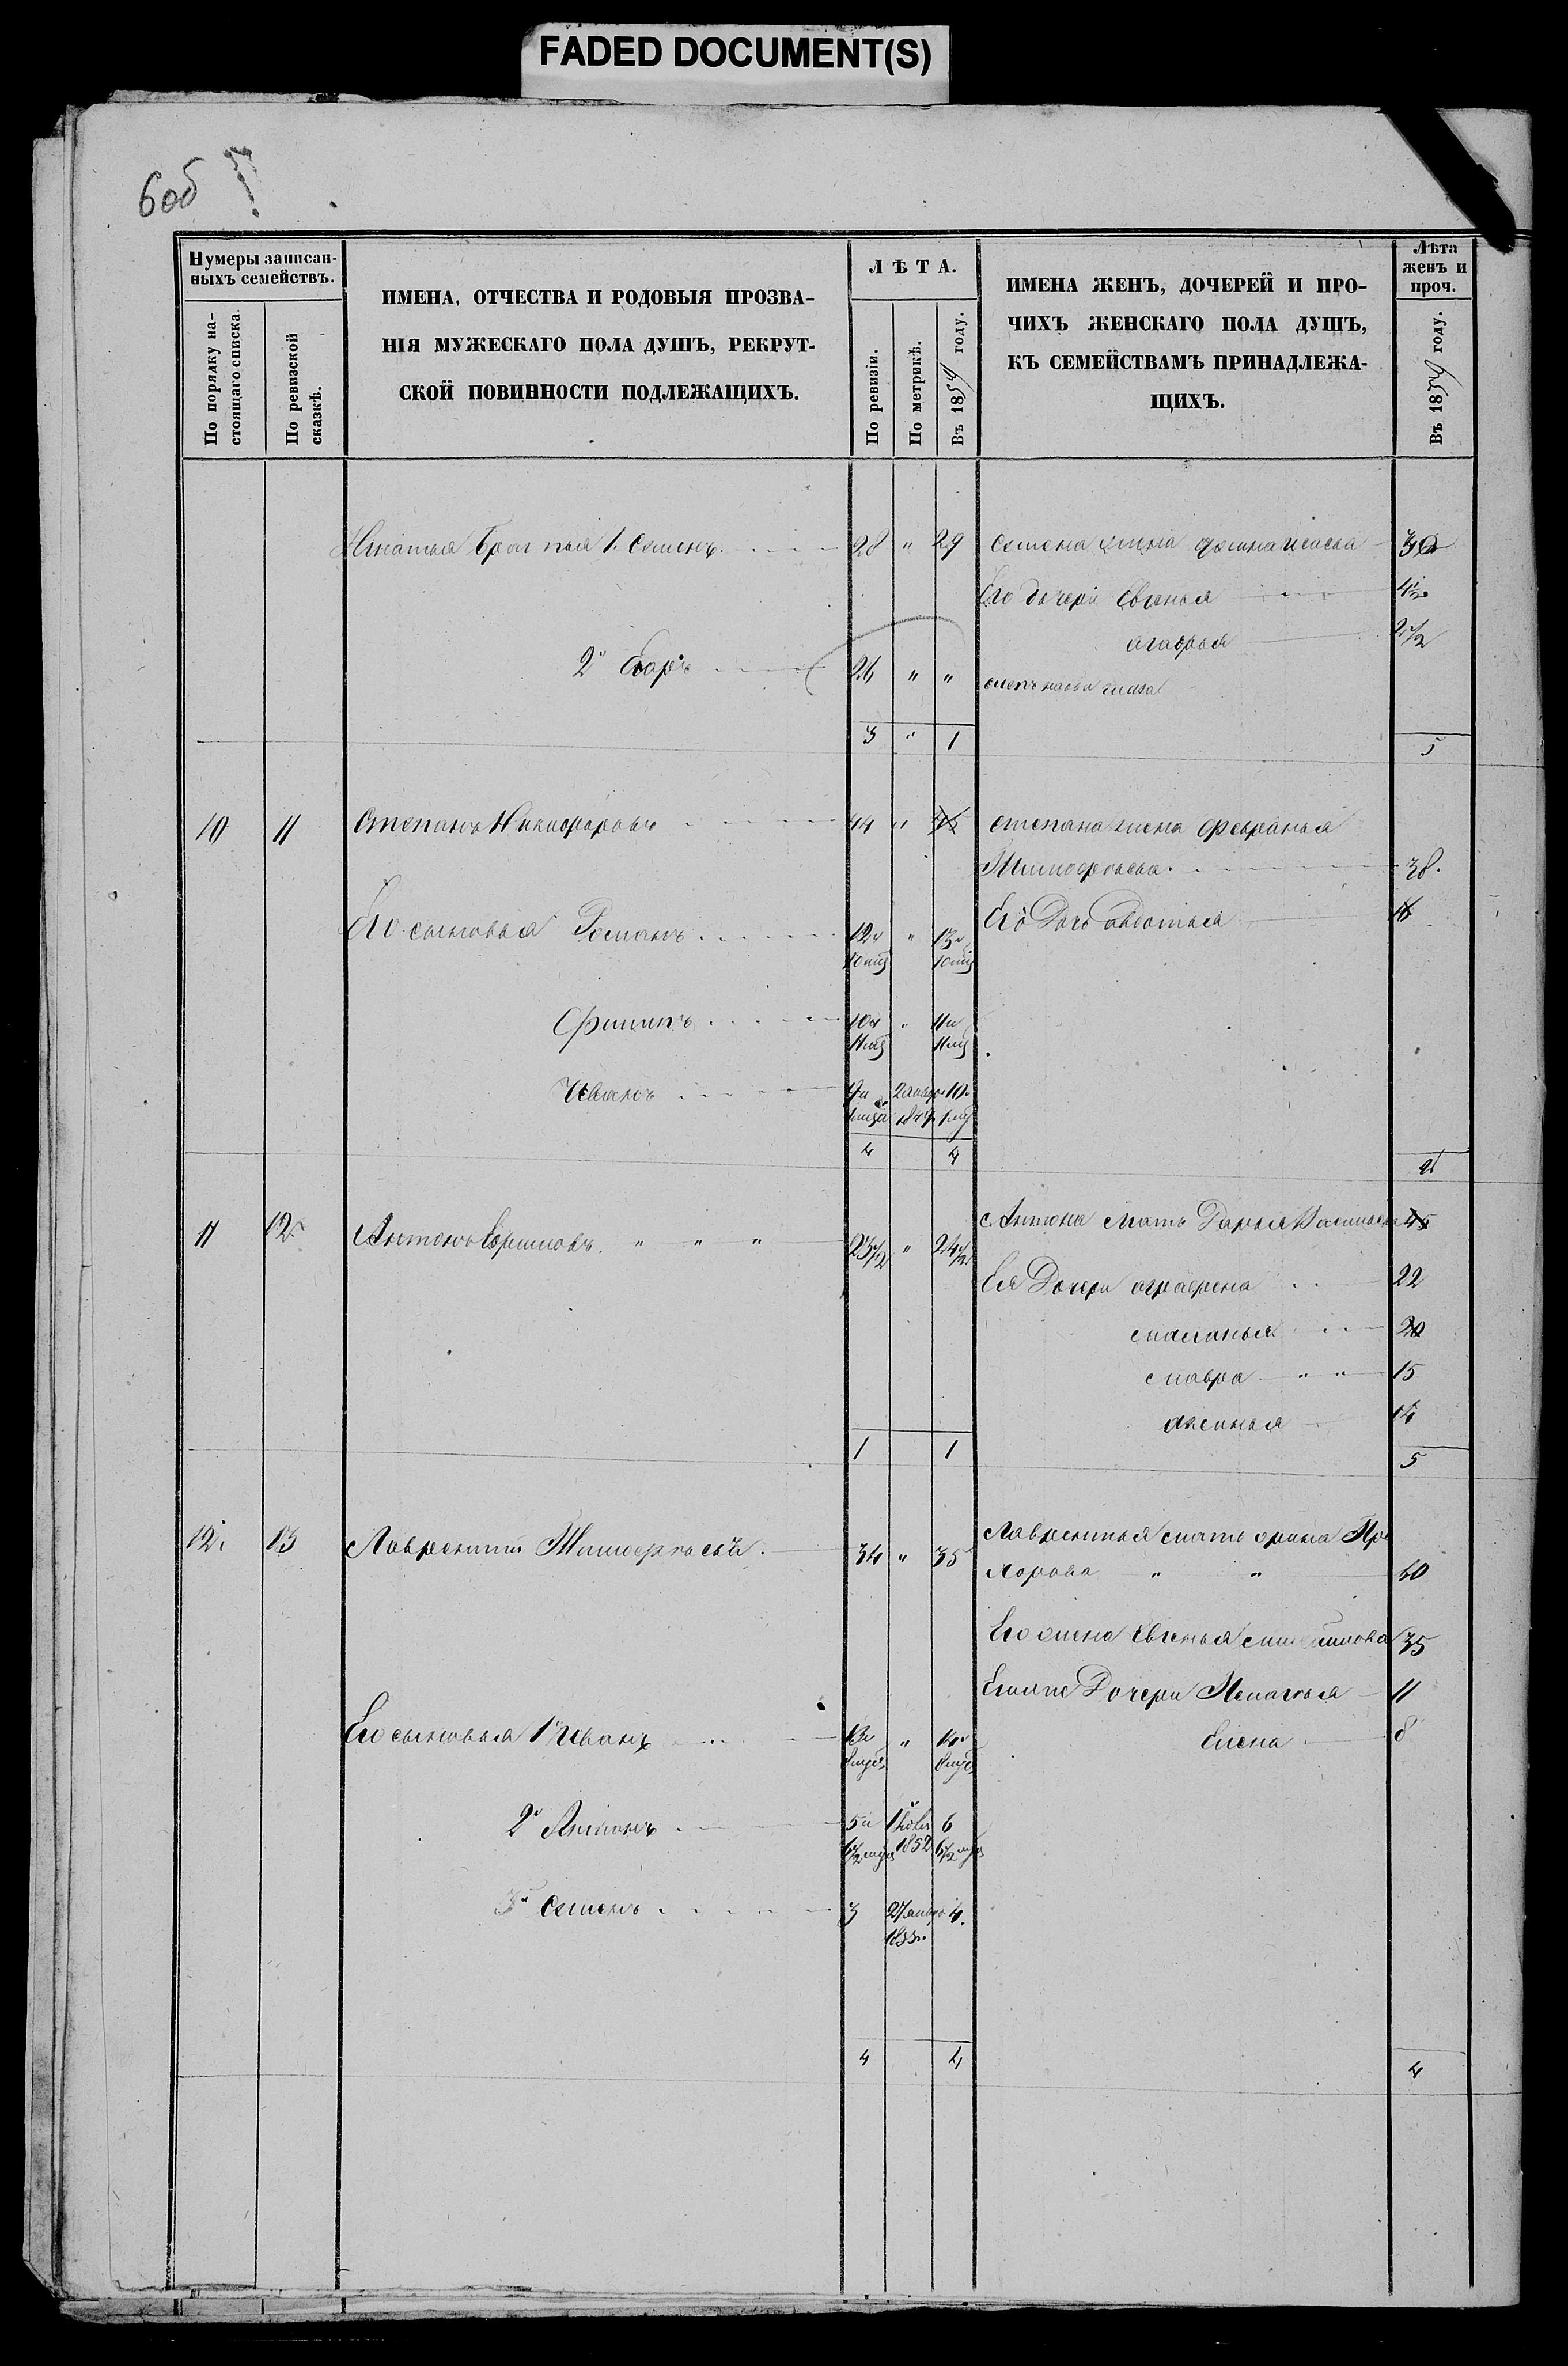 FADED DOCUMENT(S)
6об
Нумеры записан-
ныхъ семействъ.
По порядку на-
стоящаго списка.
По ревизской
сказкѣ.
ИМЕНА, ОТЧЕСТВА И РОДОВЫЯ ПРОЗВА-
НІЯ МУЖЕСКАГО ПОЛА ДУШЪ, РЕКРУТ-
СКОЙ ПОВИННОСТИ ПОДЛЕЖАЩИХЪ.
ЛѢТА.
По ревизіи.
По метрикѣ.
Въ 1859 году.
ИМЕНА ЖЕНЪ, ДОЧЕРЕЙ И ПРО-
ЧИХЪ ЖЕНСКАГО ПОЛА ДУШЪ,
КЪ СЕМЕЙСТВАМЪ ПРИНАДЛЕЖА-
ЩИХЪ.
Лѣта
женъ и
проч.
Въ 1859 году.
Игнатья братья 1. Семенъ 28 " 29 Семена жена 30
Его дочери Евгенья 4½
Агафья 2½
2й Егоръ 26 " "
3 " 1 5
10 11 Степанъ Никифоровъ 44 " 45 Степана жена Февранья
Тимофѣева 38.
Его сыновья Романъ 12 " 13 Его Дочь Авдотья 18
Филипъ 10 " 11
Иванъ 9 2 января 10
1849
4 4 2
11 12 Антонъ Ефимовъ " " " 23½ " 24½ Антона мать Дарья Васильева 45
Ея Дочери Аграфена 22
Маланья 20
Мавра " " 15
Аксинья 14
1 1 5
12. 13 Лаврентій Тимофѣевъ 34 " 35 Лаврентья мать Орина Про
хорова " " 60
Его жена Евгенья 35
Дочери Пелагѣя 11
Его сыновья 1й Иванъ " Елена 8
2й Антонъ 5 1 6
1852
3й Семенъ 3 27 января 4.
1855.
4 4 4